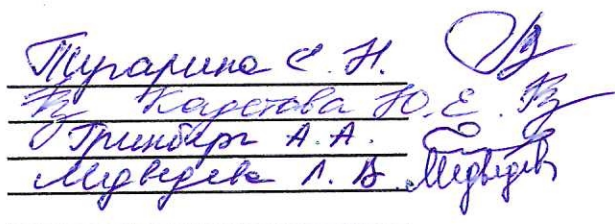 Тугарина С. Н.
Кадетова Ю. Е.
Гринберг А. А.
Медведева Л. В. Медведев